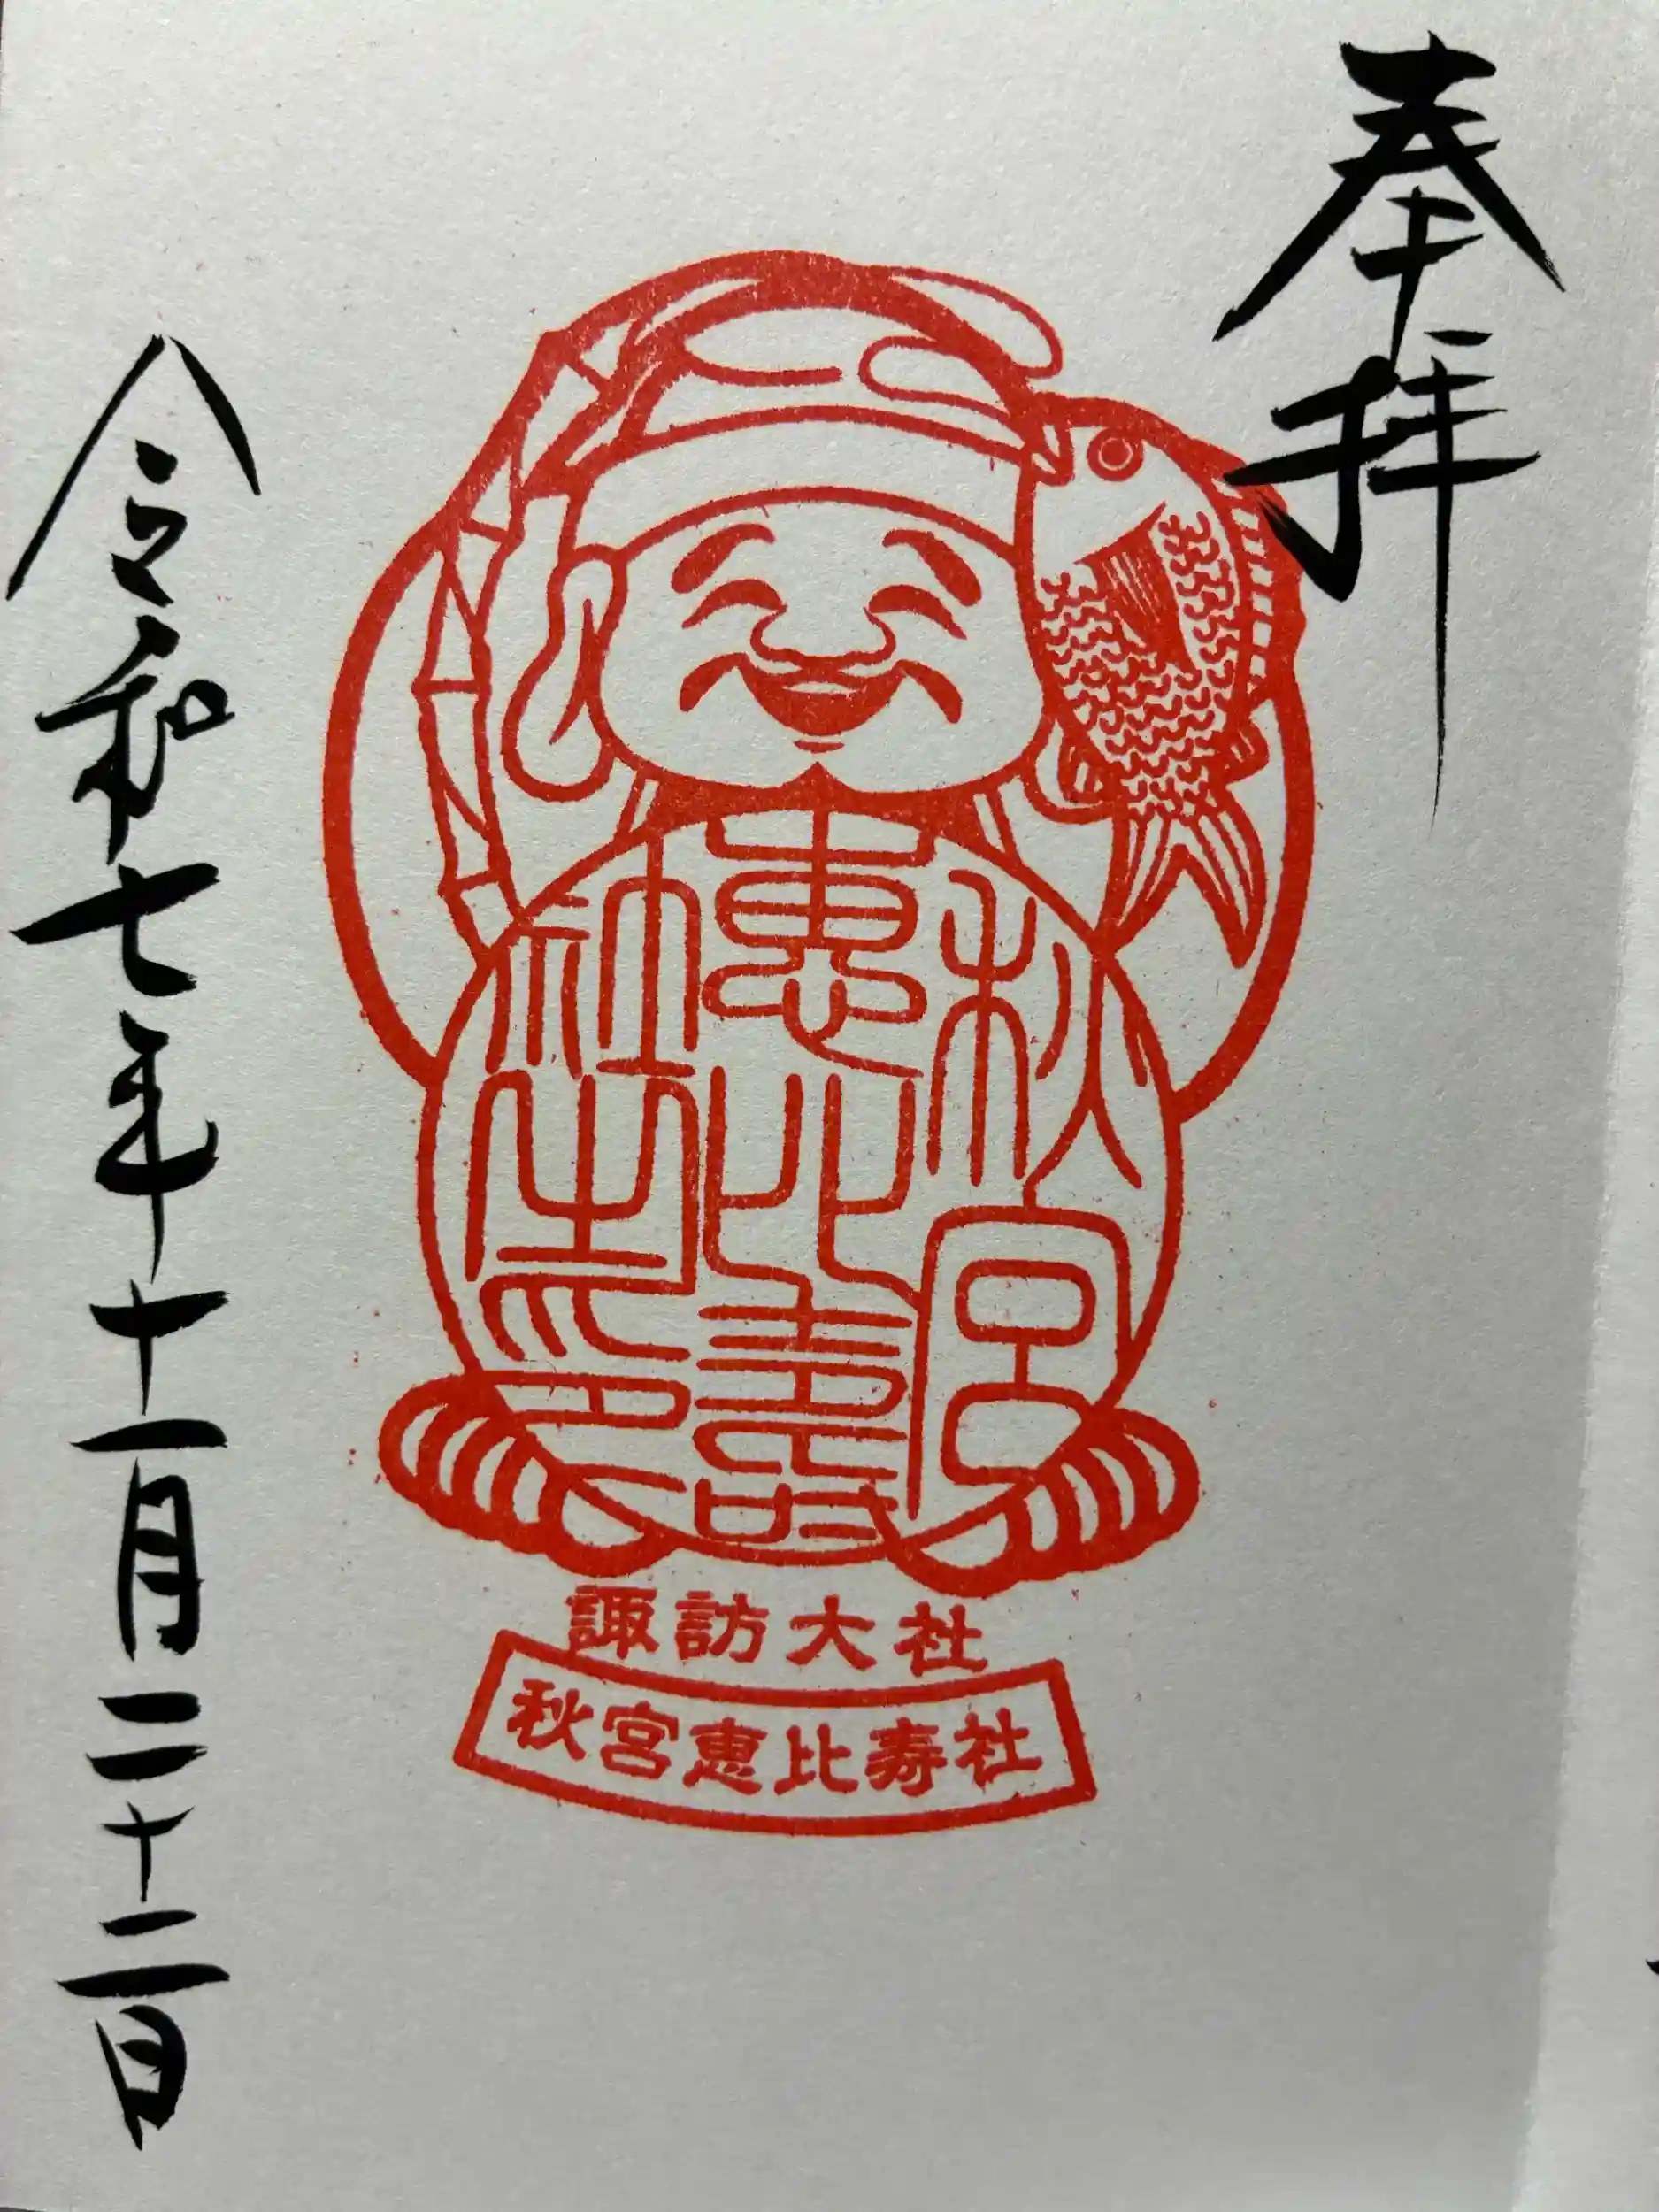 奉拝
秋宮
恵比寿
社之印
諏訪大社
秋宮恵比寿社
令和七年十一月二十二日